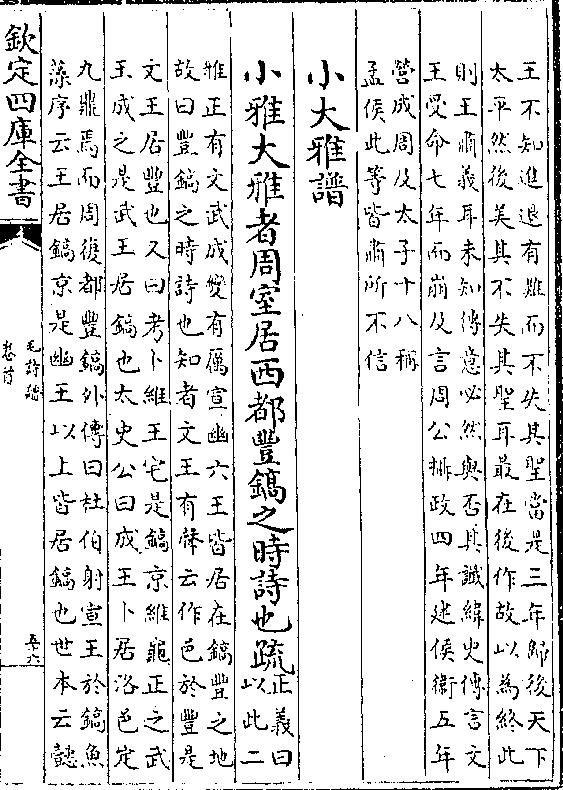 王不知進退有難而不失其聖當是三年歸後天下
太平然後美其不失其聖耳最在後作故以為終此
則王肅義耳未知傳意必然與否其讖緯史傳言文
王受命七年而崩及言周公攝政四年建侯衛五年
營成周及太子十八稱
孟侯此等皆肅所不信
小大雅譜
小雅大雅者周室居西都豐鎬之時詩也疏
正義曰
以此二
雅正有文武成變有厲宣幽六王皆居在鎬豐之地
故曰豐鎬之時詩也知者文王有聲云作邑於豐是
文王居豐也又曰考卜維王宅是鎬京維龜正之武
王成之是武王居鎬也太史公曰成王卜居洛邑定
九鼎焉而周復都豐鎬外傳曰杜伯射宣王於鎬魚
藻序云王居鎬京是幽王以上皆居鎬也世本云懿
欽定四庫全書
毛詩
卷首